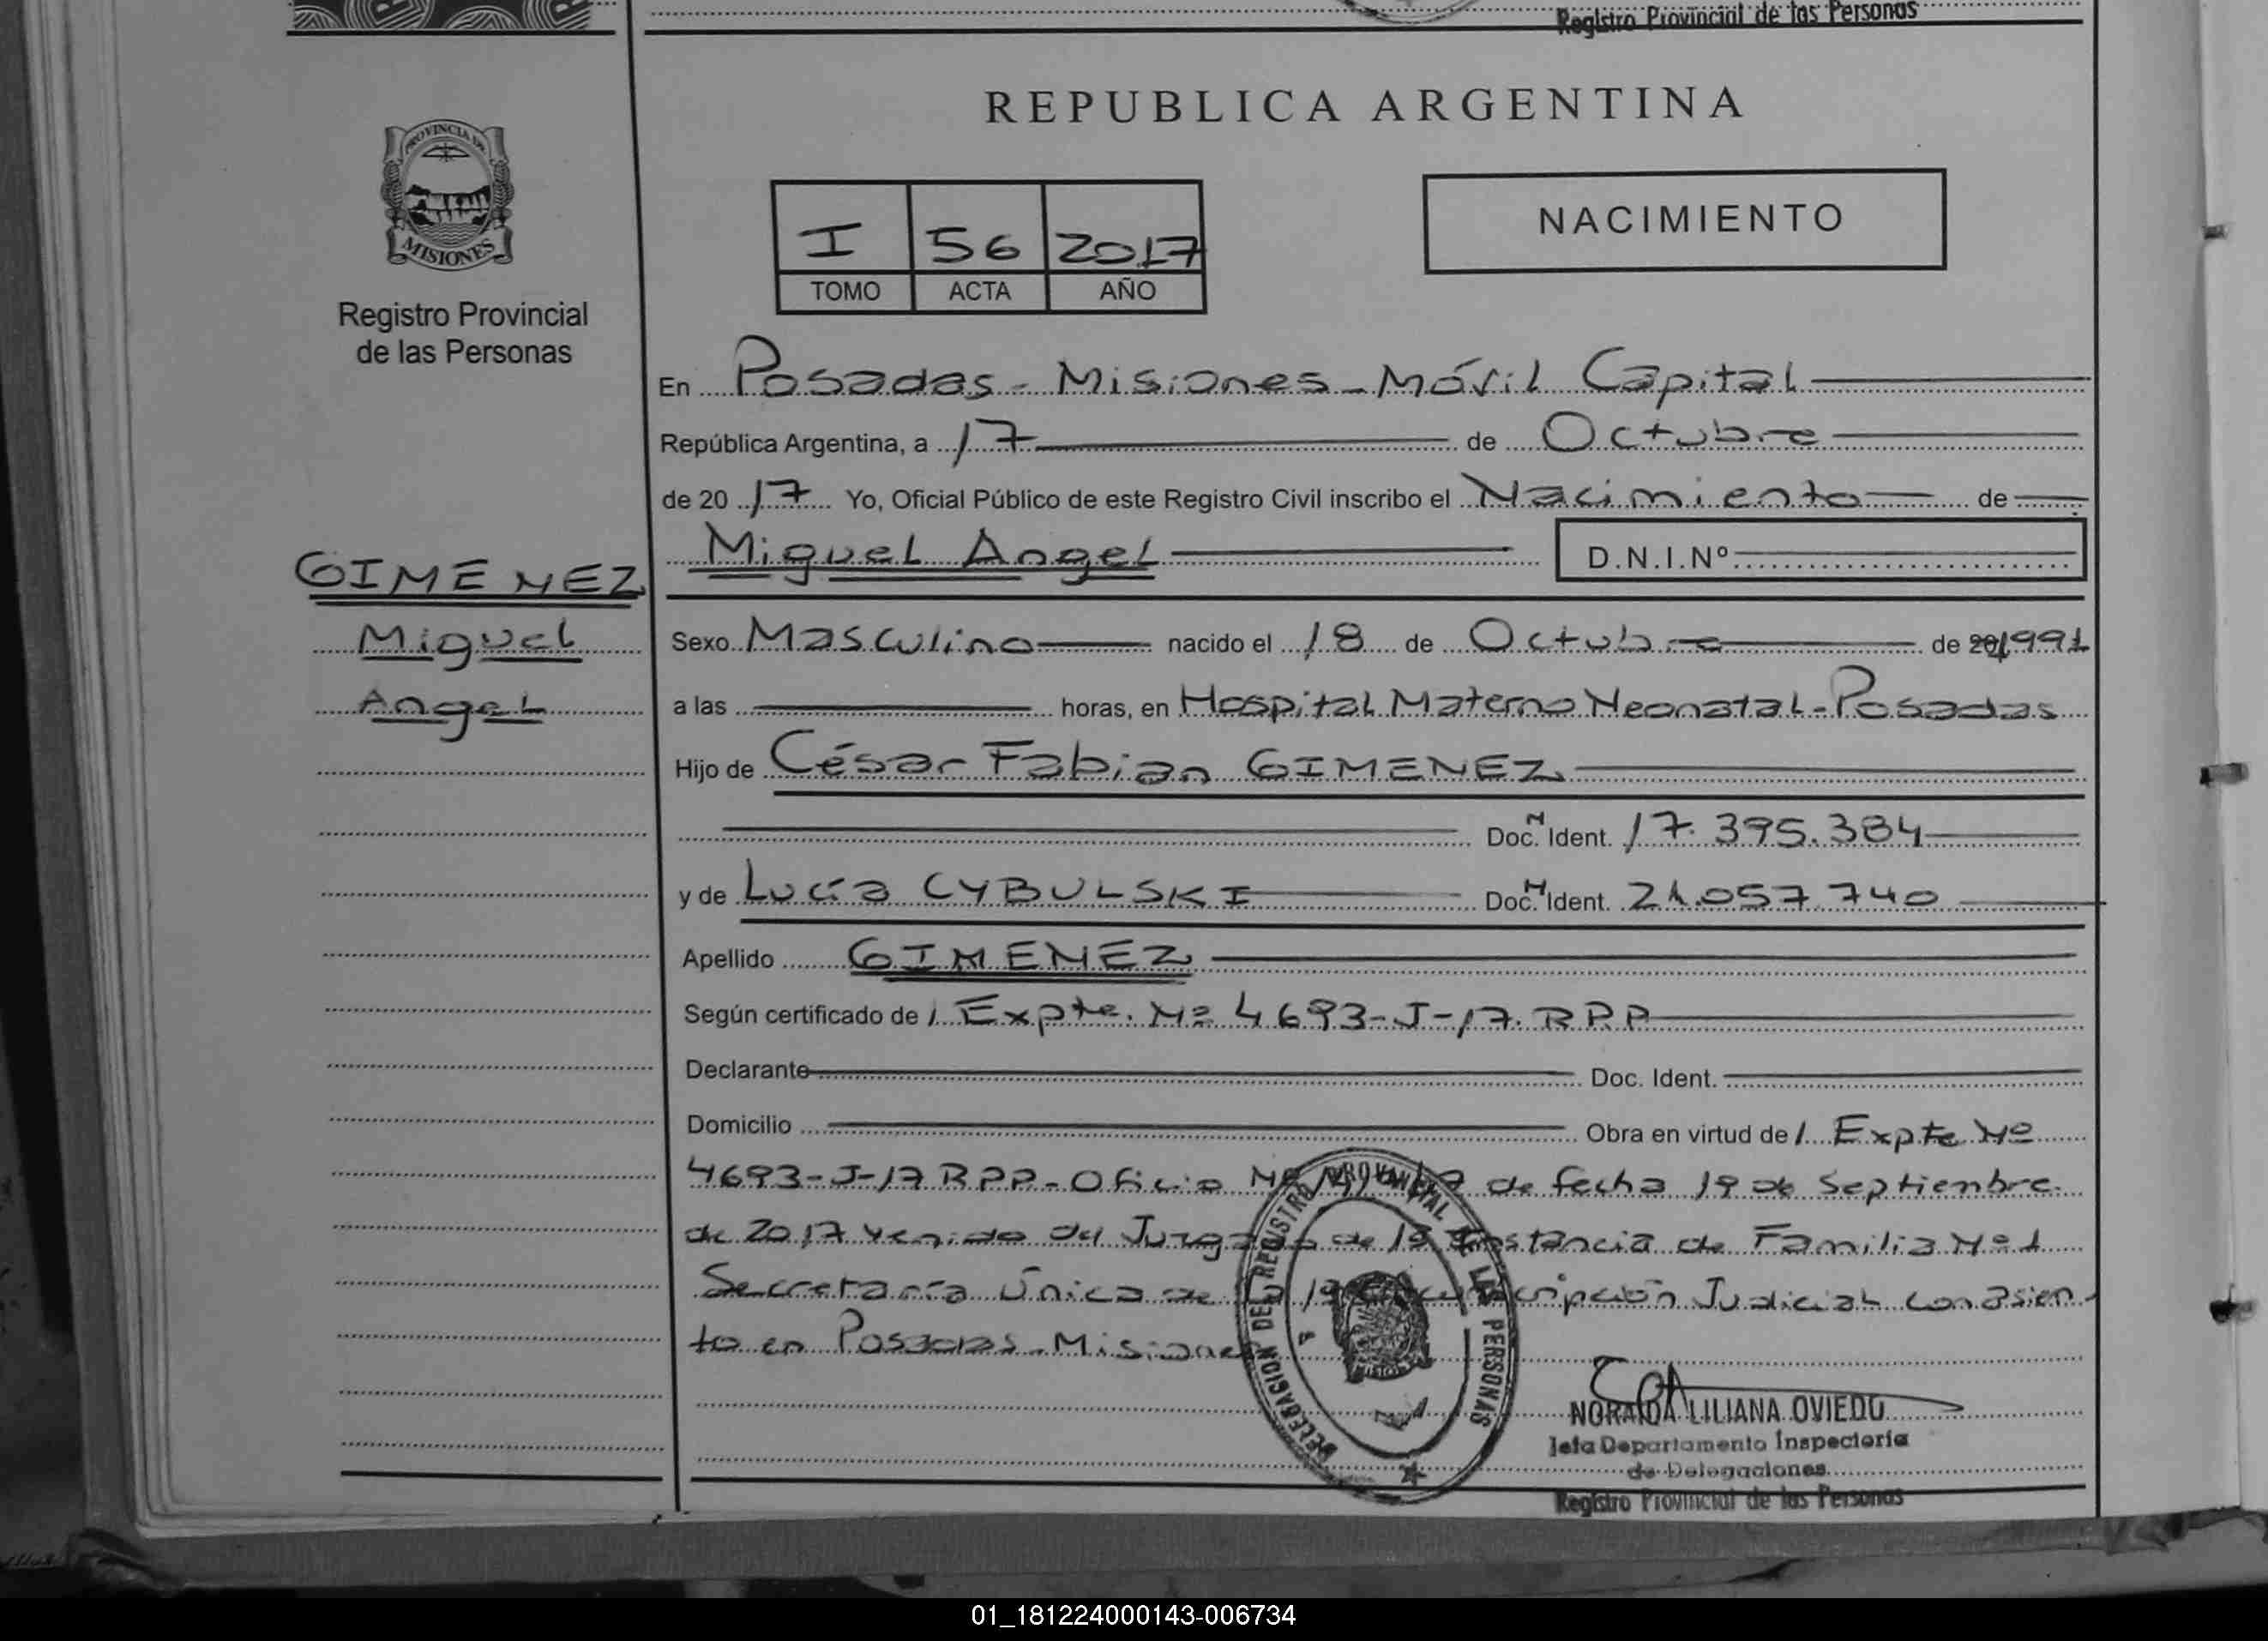 Registro Provincial de las Personas
REPUBLICA ARGENTINA
PROVINCIA DE
MISIONES
Registro Provincial
de las Personas
I 56 2017
TOMO ACTA AÑO
NACIMIENTO
En Posadas - Misiones - Móvil Capital
República Argentina, a 17 de Octubre
de 20 17 Yo, Oficial Público de este Registro Civil inscribo el Nacimiento de
Miguel Angel D.N.I.Nº
GIMENEZ
Miguel
Angel
Sexo Masculino nacido el 18 de Octubre de 20 1991
a las horas, en Hospital Materno Neonatal - Posadas
Hijo de César Fabian GIMENEZ
Doc. N Ident. 17.395.384
y de Lucía CYBULSKI Doc. N Ident. 21.057.740
Apellido GIMENEZ
Según certificado de / Expte. Nº 4693-J-17. RPP
Declarante Doc. Ident.
Domicilio Obra en virtud de / Expte Nº
4693-J-17 RPP - Oficio Nº de fecha 19 de Septiembre
de 2017 venido del Juzgado de 1º Instancia de Familia Nº 1
Secretaría Única de la 1º Circunscripción Judicial con asien-
to en Posadas - Misiones
DELEGACION DEL REGISTRO PROVINCIAL DE LAS PERSONAS
NORAIDA LILIANA OVIEDO
Jefa Departamento Inspectoría
de Delegaciones
Registro Provincial de las Personas
01_181224000143-006734